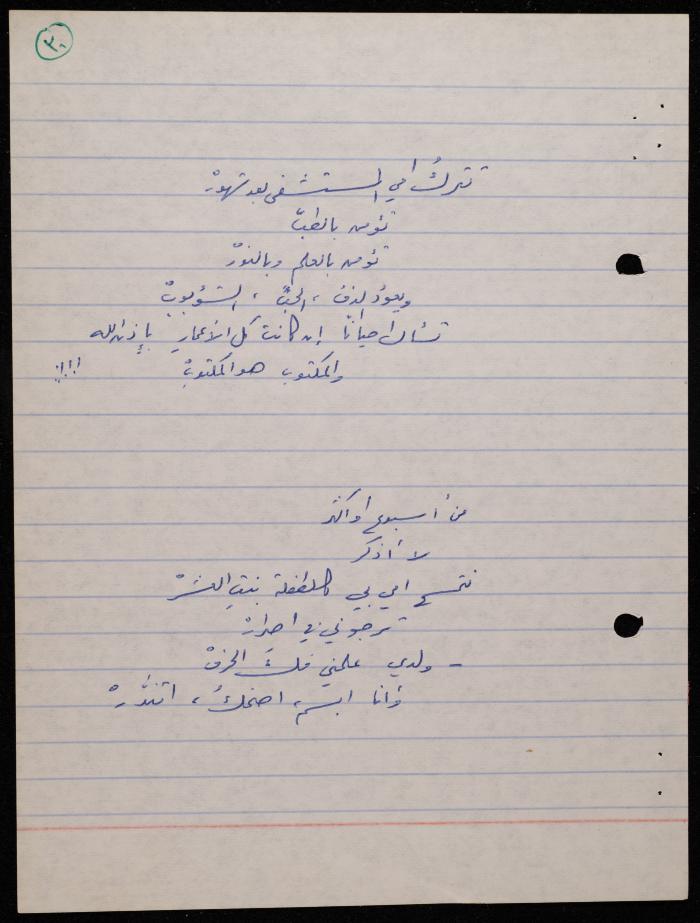 ٣٠
تتركُ امي المستشفى بعد شهورْ
تؤمن بالطبّ
تؤمن بالعلم وبالنورْ
ويعودُ لدفء ، الحبّ ،
تسأل احيانًا إن كانت كل الأعمارِ بإذن الله
والمكتوب هو المكتوبْ !!!؟
من أسبوع أو أكثر
لا أذكر
تتمسح امي بي كالطفلة بنتِ العَشرْ
ترجوني في اصرارْ
– ولدي علمني فكَّ الحرفْ
وأنا ابسم، اضحكُ، اتندَّرْ